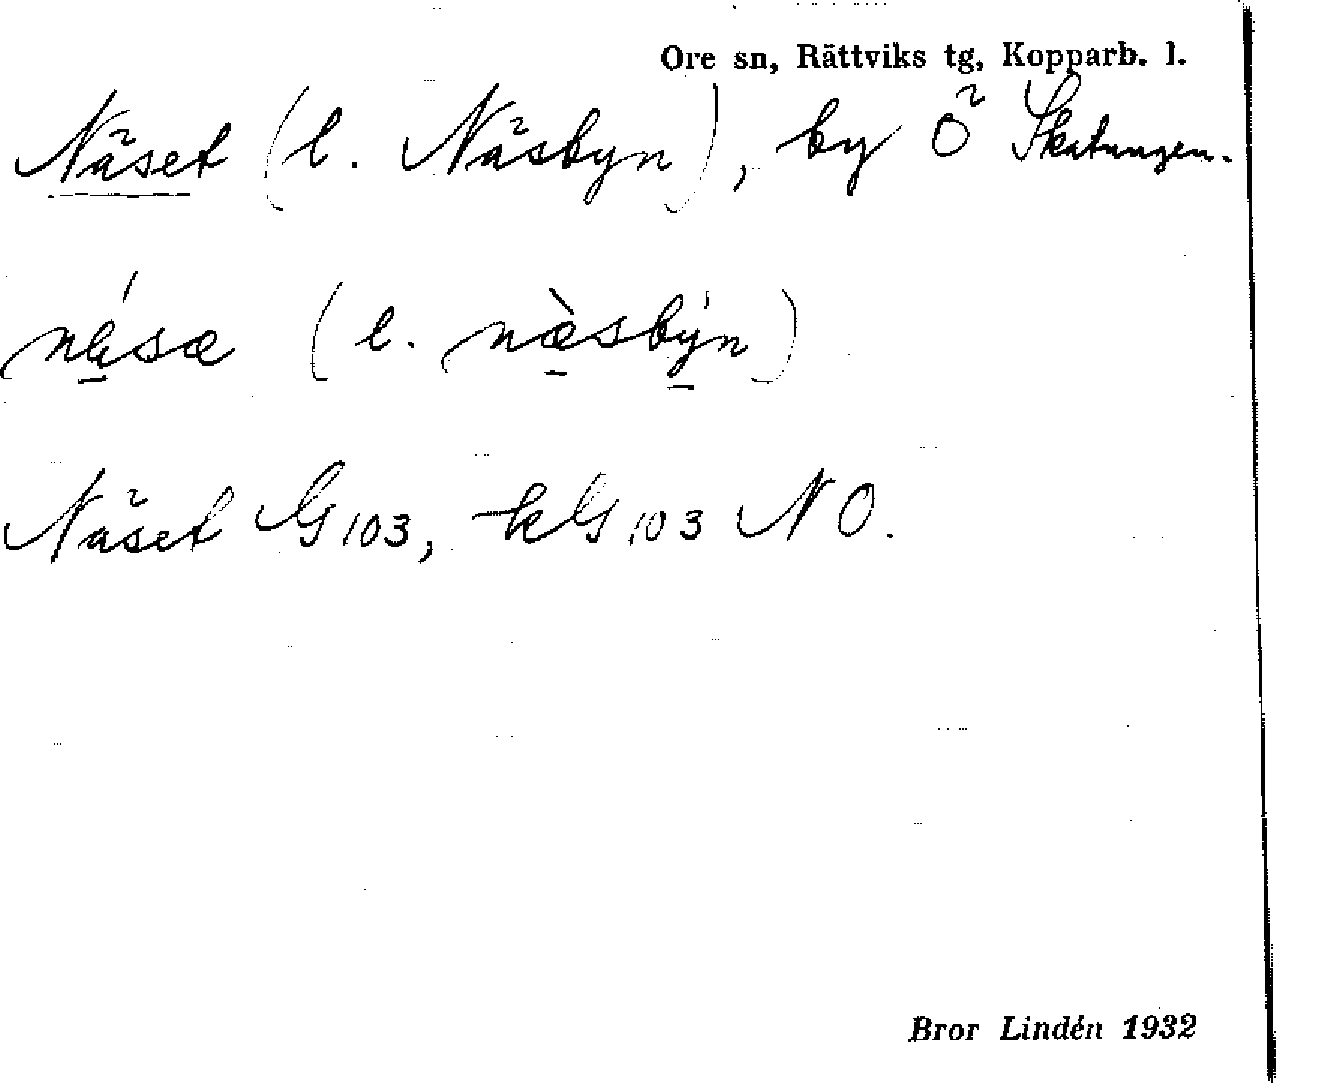 Ore sn, Rättviks tg, Kopparb. l.
Näset (l. Näsbyn), by Ö Skatungen.
næ̀sæ (l. næ̀sbýn)
Näset G 103, kG 103 NO.
Bror Lindén 1932